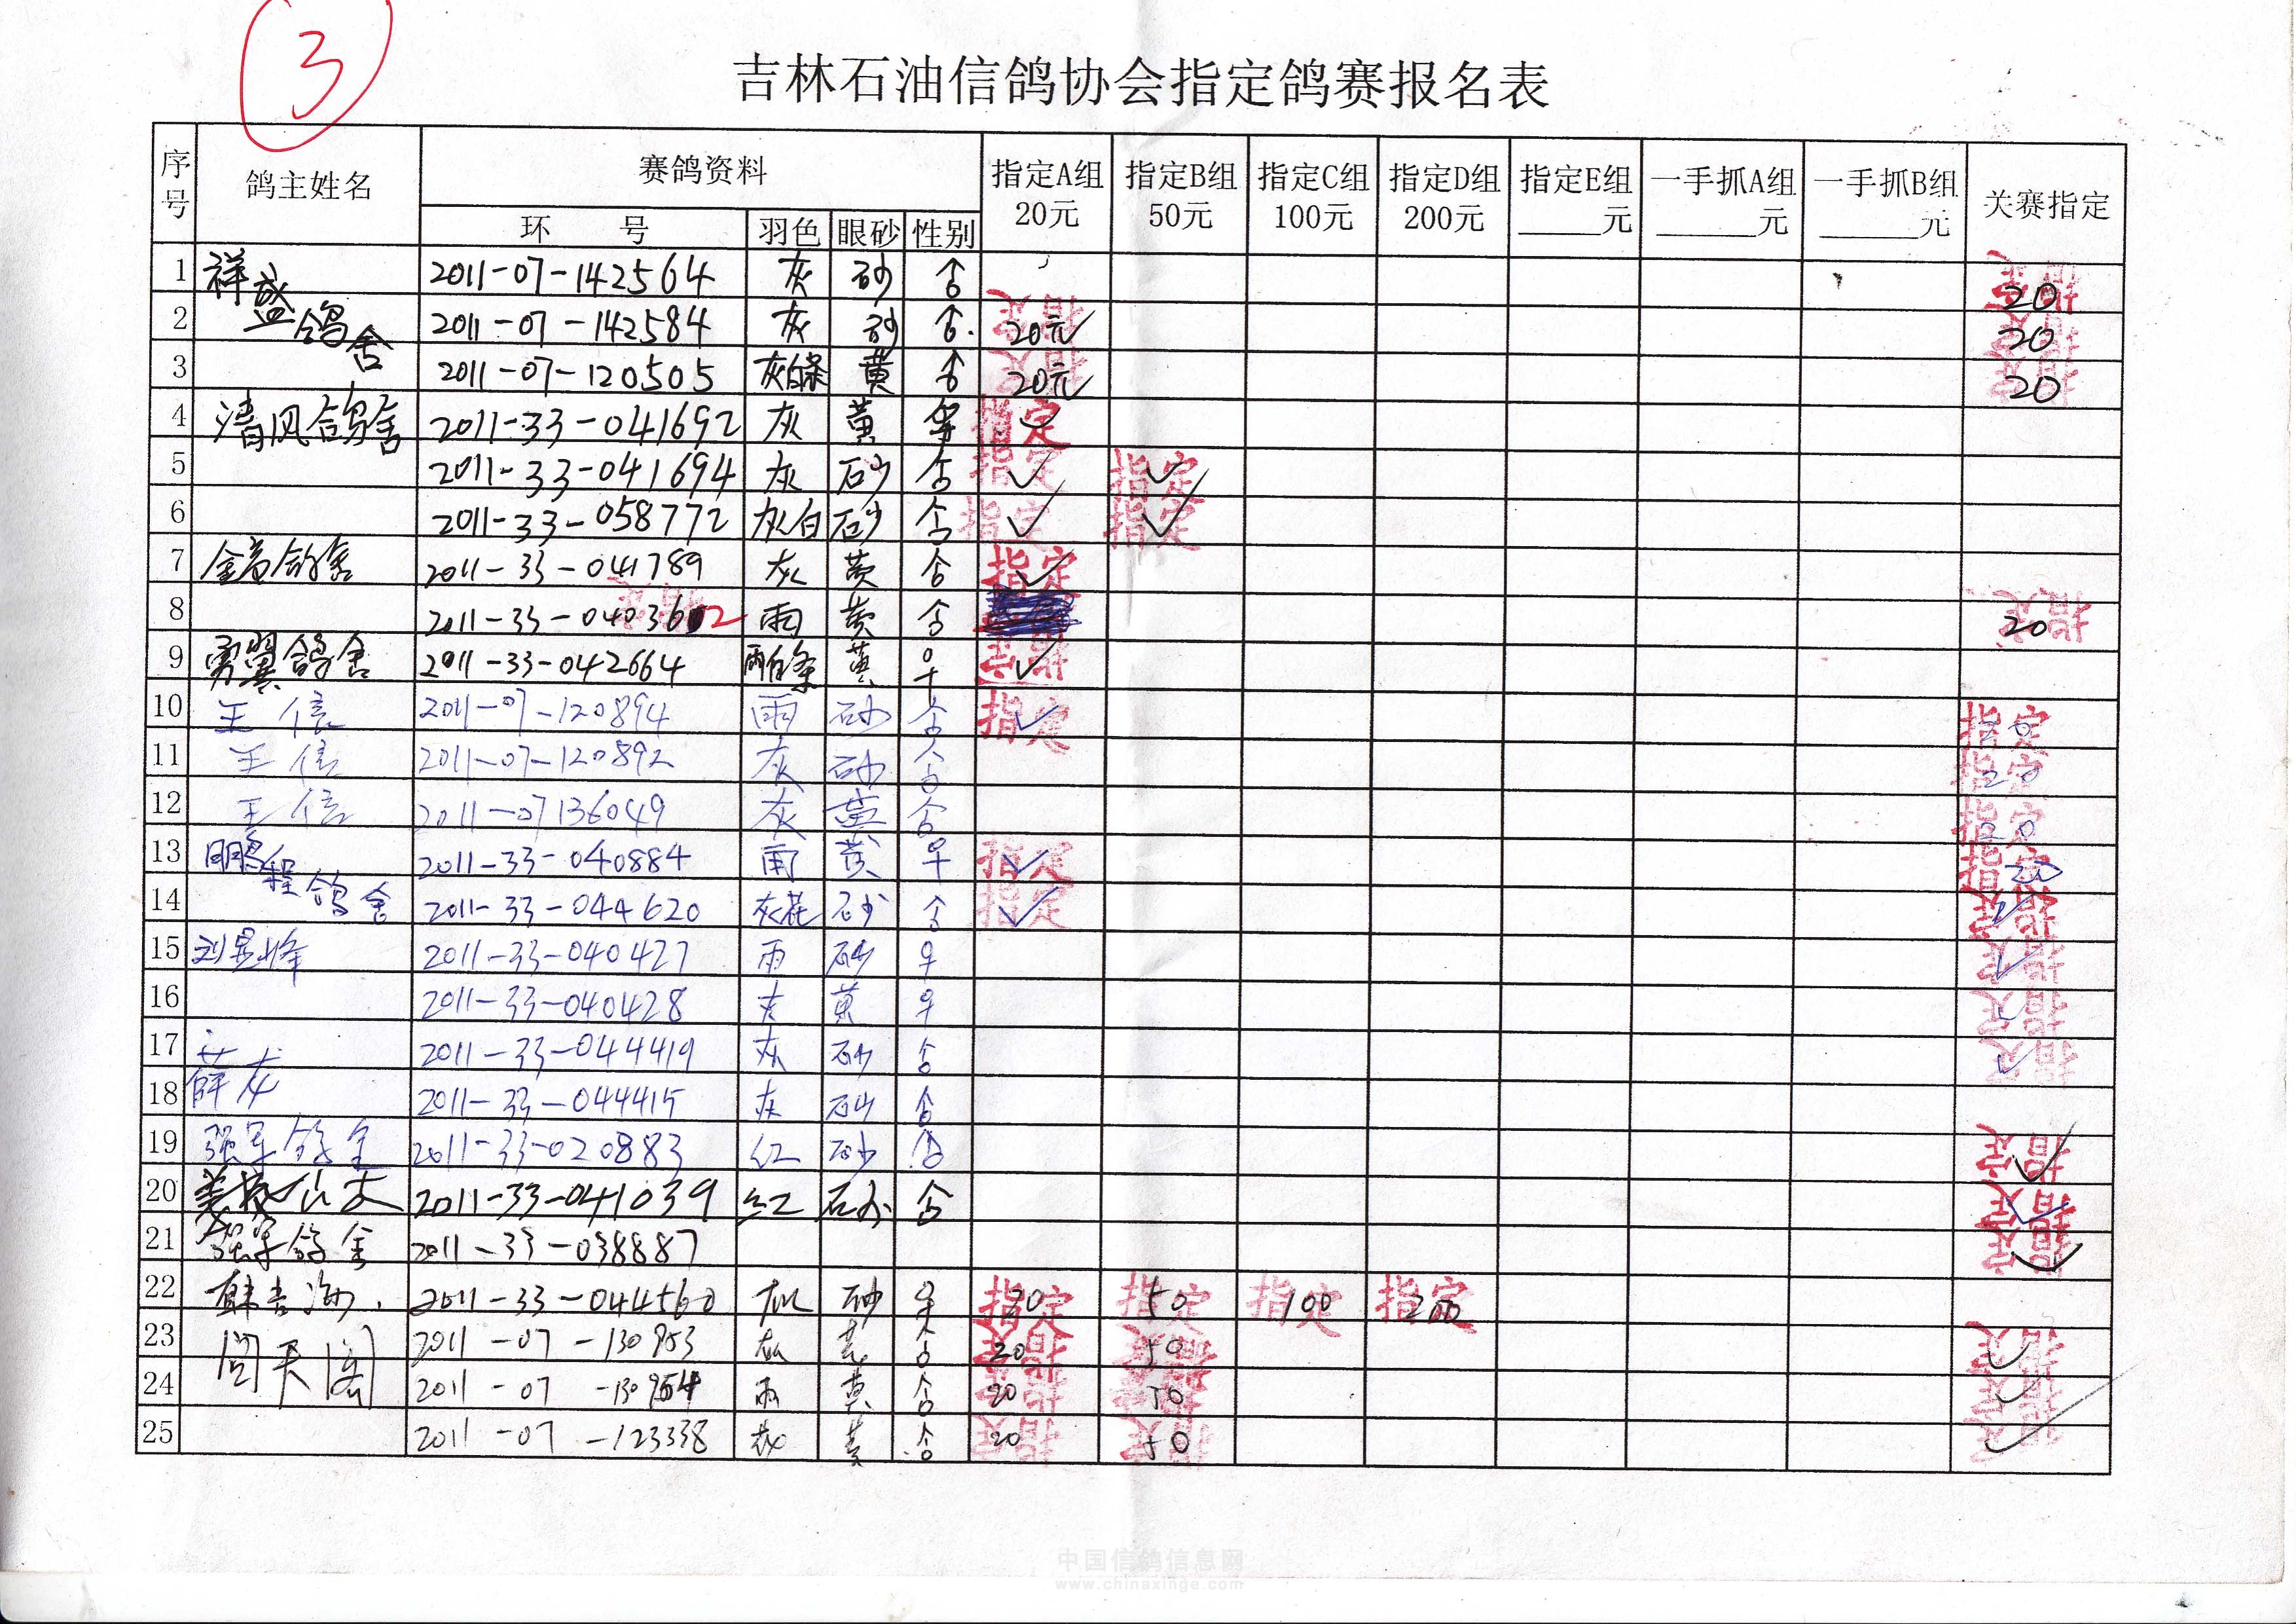 3
吉林石油信鸽协会指定鸽赛报名表
序号 鸽主姓名 赛鸽资料 指定A组 20元 指定B组 50元 指定C组 100元 指定D组 200元 指定E组 ____元 一手抓A组 ____元 一手抓B组 ____元 关赛指定
环 号 羽色 眼砂 性别
1 祥盛鸽舍 2011-07-142564 灰 砂 ♂ 指定 20
2 2011-07-142584 灰 砂 ♂ 指定 20元✓ 指定 20
3 2011-07-120505 灰白条 黄 ♂ 指定 20元✓ 指定 20
4 清风鸽舍 2011-33-041692 灰 黄 ♀ 指定 ✓
5 2011-33-041694 灰 砂 ♂ 指定 ✓ 指定 ✓
6 2011-33-058772 灰白 砂 ♂ 指定 ✓ 指定 ✓
7 鸽舍 2011-33-041789 灰 黄 ♂ 指定 ✓
8 2011-33-040362 雨 黄 ♂ 指定 20
9 勇翼鸽舍 2011-33-042664 雨白条 黄 ♀ 指定 ✓
10 王信 2011-07-120894 雨 砂 ♂ 指定 ✓ 指定 20
11 王信 2011-07-120892 灰 砂 ♂ 指定 20
12 王信 2011-07136049 灰 黄 ♂ 指定 20
13 鹏程鸽舍 2011-33-040884 雨 黄 ♀ 指定 ✓ 指定 20
14 2011-33-044620 灰花 砂 ♂ 指定 ✓ 指定 ✓
15 刘显峰 2011-33-040427 雨 砂 ♀ 指定 ✓
16 2011-33-040428 灰 黄 ♀ 指定 ✓
17 薛龙 2011-33-044419 灰 砂 ♂ 指定 ✓
18 2011-33-044415 灰 砂 ♂
19 强军鸽舍 2011-33-020883 红 砂 ♂ 指定 ✓
20 2011-33-041039 红 砂 ♂ 指定 ✓
21 强军鸽舍 2011-33-038887 指定 ✓
22 韩吉海 2011-33-044560 灰 砂 ♀ 指定 20 指定 50 指定 100 指定 200
23 闫天阁 2011-07-130953 灰 黄 ♂ 指定 20 指定 50 指定 ✓
24 2011-07-130954 雨 黄 ♂ 指定 20 指定 50 指定 ✓
25 2011-07-123338 灰 黄 ♂ 指定 20 指定 50 指定 ✓
中国信鸽信息网
www.chinaxinge.com